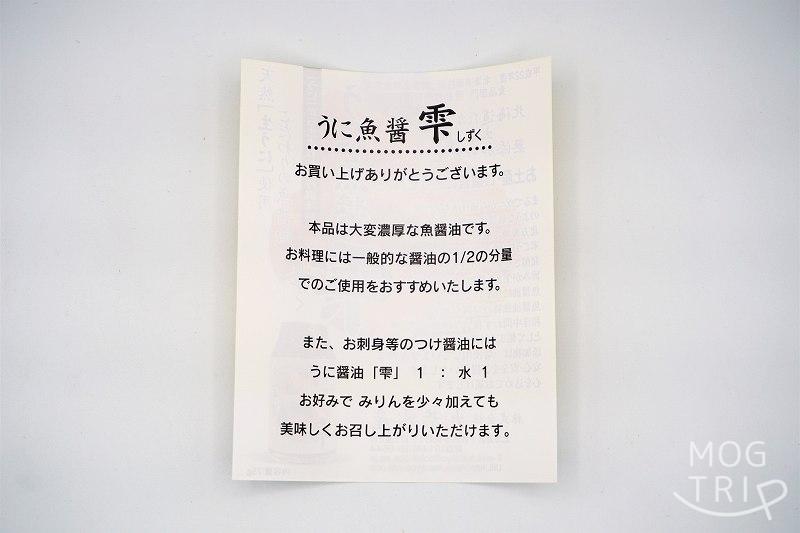 うに魚醤 雫 しずく
お買い上げありがとうございます。
本品は大変濃厚な魚醤油です。
お料理には一般的な醤油の1/2の分量
でのご使用をおすすめいたします。
また、お刺身等のつけ醤油には
うに醤油「雫」 1 : 水 1
お好みで みりんを少々加えても
美味しくお召し上がりいただけます。
MOG
TRIP